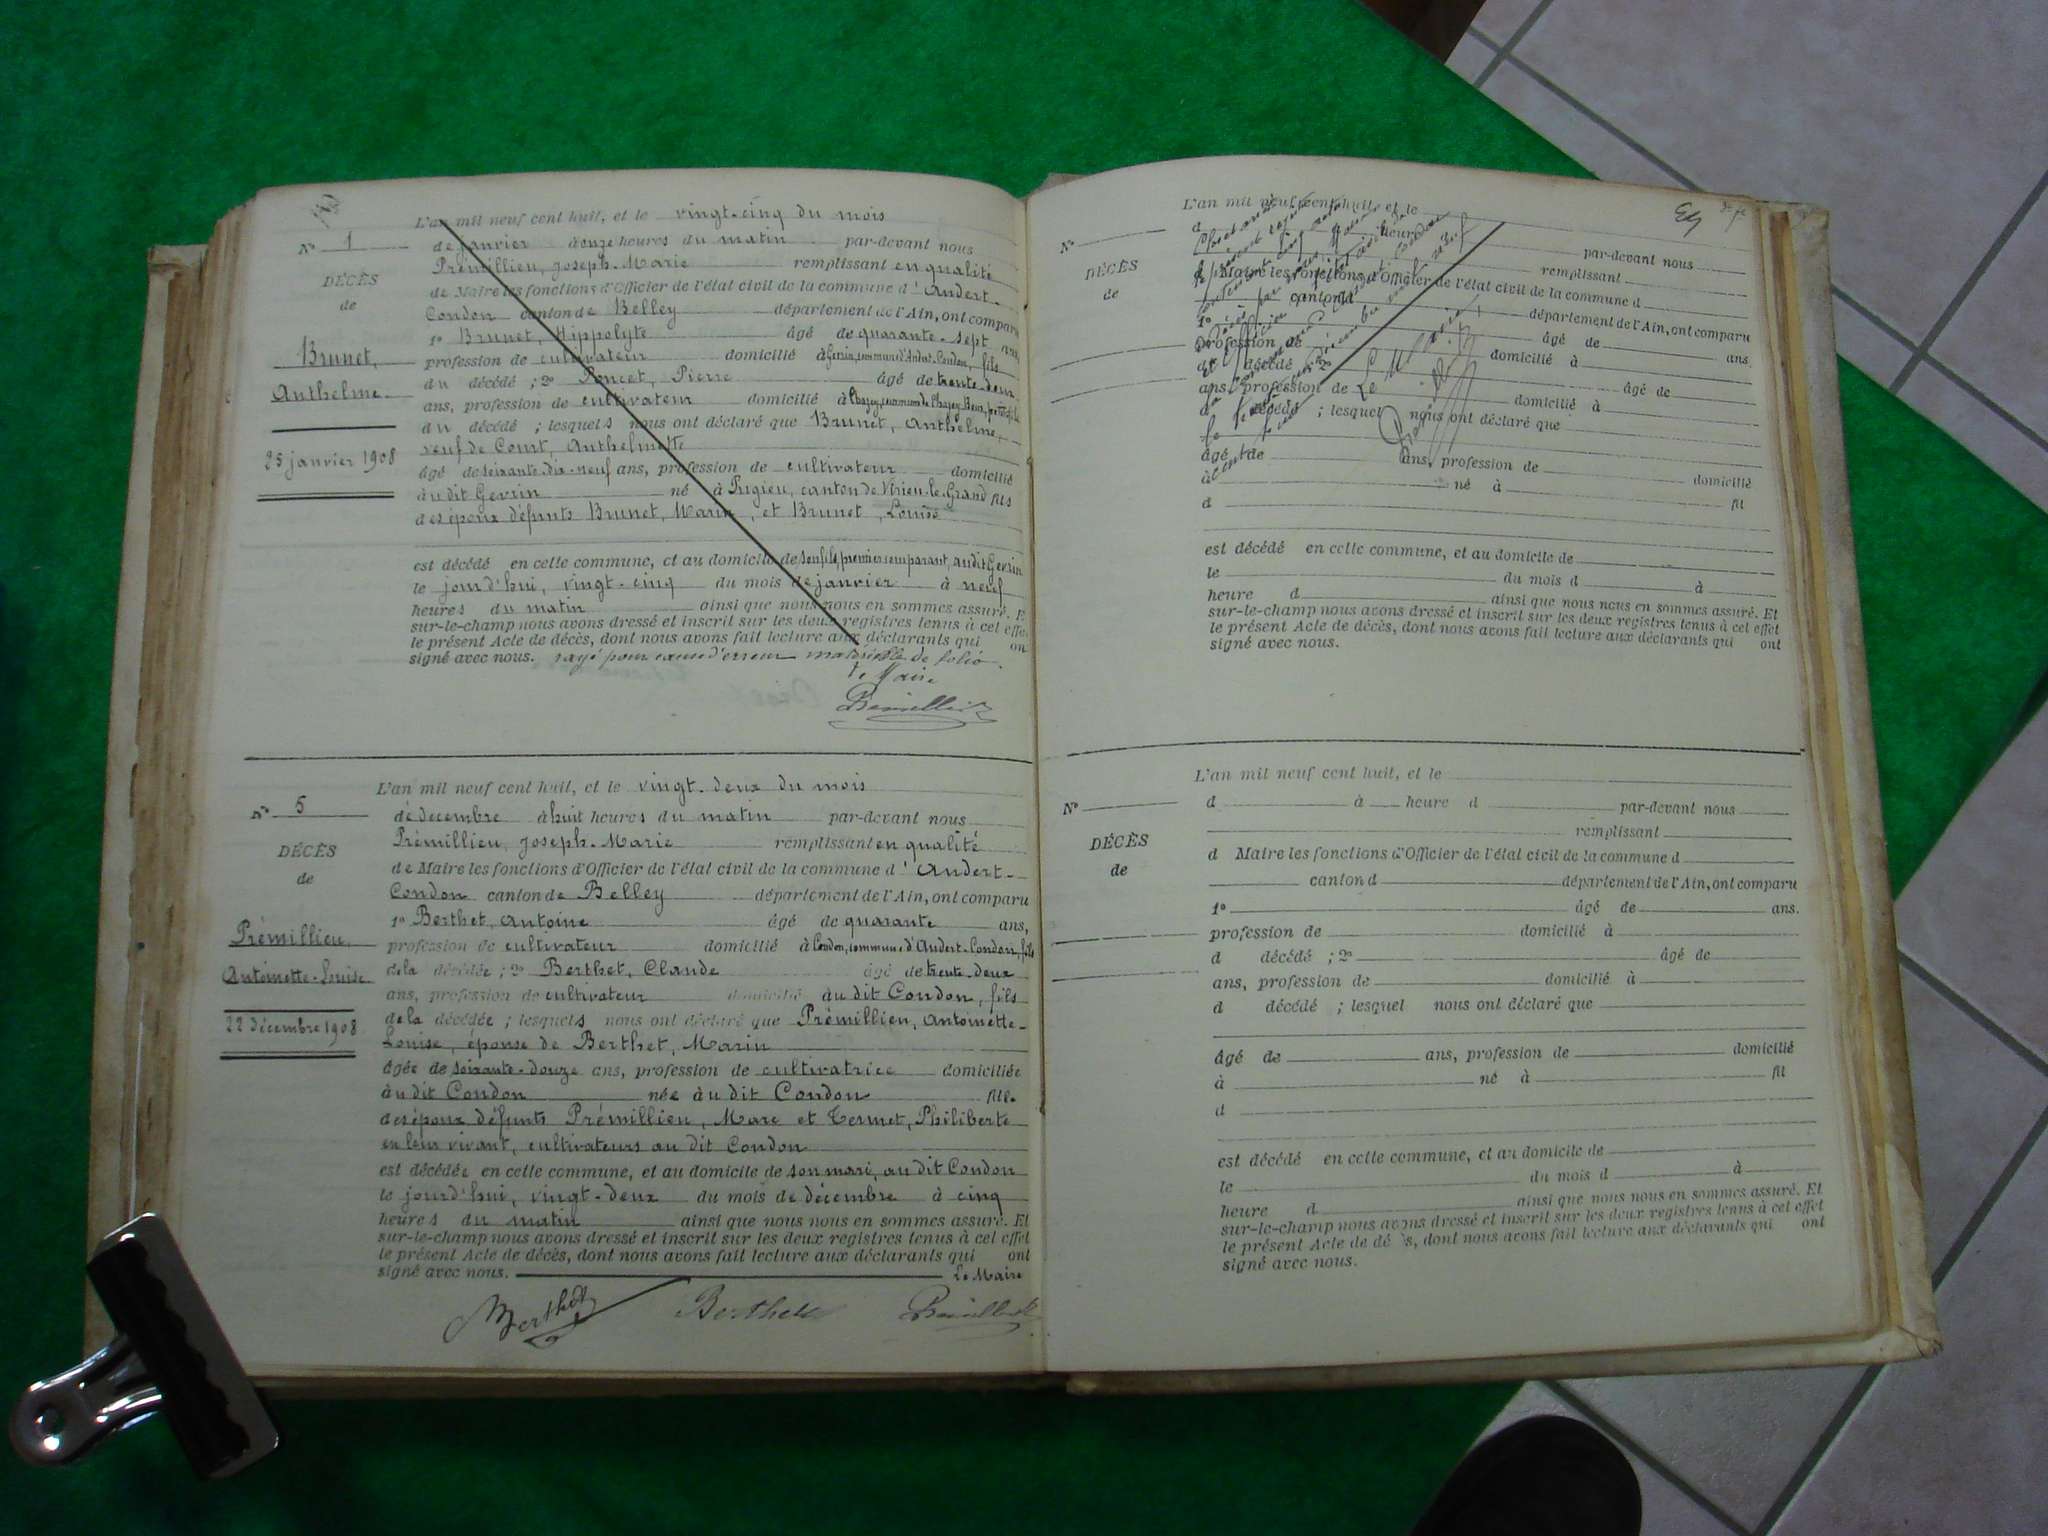 L'an mil neuf cent huit, et le vingt-cinq du mois
N° 1 de janvier à onze heures du matin par-devant nous
Prémillieu, Joseph-Marie remplissant en qualité
DÉCÈS
de Maire les fonctions d'Officier de l'état civil de la commune d'Andert-
de
Condon canton de Belley département de l'Ain, ont comparu
1° Brunet, Hippolyte âgé de quarante-sept ans,
Brunet,
profession de cultivateur domicilié à Gevrin, commune d'Andert-Condon, fils
Anthelme
du décédé ; 2° Poncet, Pierre âgé de trente-deux
ans, profession de cultivateur domicilié à Chazey, commune de Chazey-Bons,
du décédé ; lesquels nous ont déclaré que Brunet, Anthelme,
veuf de Court, Anthelmette
25 janvier 1908
âgé de soixante-dix-neuf ans, profession de cultivateur domicilié
au dit Gevrin né à Pugieu, canton de Virieu-le-Grand fils
des époux défunts Brunet, Marin, et Brunet, Louise
est décédé en cette commune, et au domicile de son fils, premier comparant, au dit Gevrin
le jourd'hui, vingt-cinq du mois de janvier à neuf
heures du matin ainsi que nous nous en sommes assuré. Et
sur-le-champ nous avons dressé et inscrit sur les deux registres tenus à cet effet
le présent Acte de décès, dont nous avons fait lecture aux déclarants qui ont
signé avec nous. rayé pour cause d'erreur matérielle de folio.
Le Maire
Prémillieu
L'an mil neuf cent huit, et le vingt-deux du mois
N° 5 de décembre à huit heures du matin par-devant nous
Prémillieu, Joseph-Marie remplissant en qualité
DÉCÈS
de Maire les fonctions d'Officier de l'état civil de la commune d'Andert-
de
Condon canton de Belley département de l'Ain, ont comparu
1° Berthet, Antoine âgé de quarante ans,
Prémillieu,
profession de cultivateur domicilié à Condon, commune d'Andert-Condon, fils
Antoinette-Louise
de la décédée ; 2° Berthet, Claude âgé de trente-deux
ans, profession de cultivateur domicilié au dit Condon, fils
22 décembre 1908
de la décédée ; lesquels nous ont déclaré que Prémillieu, Antoinette-
Louise, épouse de Berthet, Marin
âgée de soixante-douze ans, profession de cultivatrice domiciliée
au dit Condon née au dit Condon fille
des époux défunts Prémillieu, Marc et Termet, Philiberte
en leur vivant, cultivateurs au dit Condon
est décédée en cette commune, et au domicile de son mari, au dit Condon
le jourd'hui, vingt-deux du mois de décembre à cinq
heures du matin ainsi que nous nous en sommes assuré. Et
sur-le-champ nous avons dressé et inscrit sur les deux registres tenus à cet effet
le présent Acte de décès, dont nous avons fait lecture aux déclarants qui ont
signé avec nous. Le Maire
Berthet Berthet Prémillieu
L'an mil neuf cent huit, et le
N° d heure par-devant nous
DÉCÈS
remplissant
de
d Maire les fonctions d'Officier de l'état civil de la commune d
canton d département de l'Ain, ont comparu
1° âgé de ans.
profession de domicilié à
d décédé ; 2° âgé de
ans, profession de domicilié à
d décédé ; lesquel nous ont déclaré que
âgé de ans, profession de domicilié
à né à fil
d
est décédé en cette commune, et au domicile de
le du mois d à
heure d ainsi que nous nous en sommes assuré. Et
sur-le-champ nous avons dressé et inscrit sur les deux registres tenus à cet effet
le présent Acte de décès, dont nous avons fait lecture aux déclarants qui ont
signé avec nous.
Le Maire
L'an mil neuf cent huit, et le
N° d à heure d par-devant nous
remplissant
DÉCÈS
d Maire les fonctions d'Officier de l'état civil de la commune d
de
canton d département de l'Ain, ont comparu
1° âgé de ans.
profession de domicilié à
d décédé ; 2° âgé de
ans, profession de domicilié à
d décédé ; lesquel nous ont déclaré que
âgé de ans, profession de domicilié
à né à fil
d
est décédé en cette commune, et au domicile de
le du mois d à
heure d ainsi que nous nous en sommes assuré. Et
sur-le-champ nous avons dressé et inscrit sur les deux registres tenus à cet effet
le présent Acte de décès, dont nous avons fait lecture aux déclarants qui ont
signé avec nous.